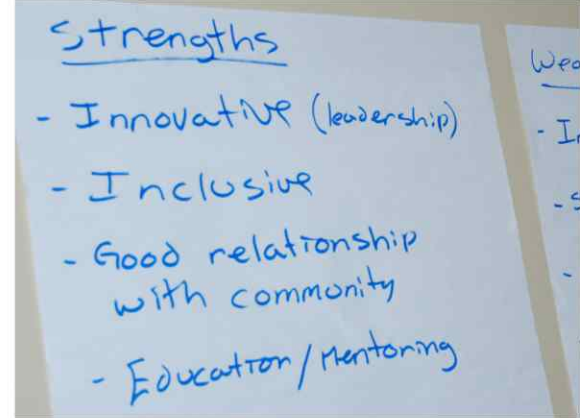 Strengths
- Innovative (leadership)
- Inclusive
- Good relationship
with community
- Education/Mentoring